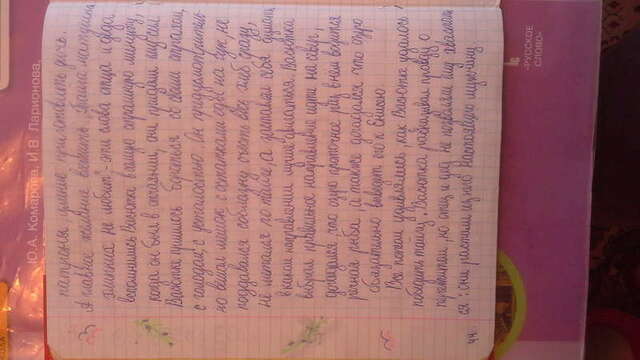 КОЛА
Ю.А. Комарова, И.В. Ларионова,
патроны, умение приготовить дичь.
А главное желание выжить. „Тайга матушка
хлипких не любит" - эти слова отца и деда
вспомнились Васютке в самую страшную минуту,
когда он был в отчаянии, они придали ему сил.
Васютке пришлось бороться со своим страхом,
с голодом, с усталостью. Он предусмотритель-
но вешал мешок с остатками еды на сук, не
поддавался соблазну съесть весь хлеб сразу,
не метался по тайге, а заставлял себя думать
в каком направлении лучше двигаться. Васютка
выбрал правильное направление идти на север,
догадался, что озеро проточное раз в нем водится
речная рыба, а также догадался что озеро
обязательно выведет его к Енисею.
Все потом удивлялись, как Васютке удалось
победить тайгу. Васютка рассказывал правду о
пережитом, но отец и дед не позволяли ему хвастать-
ся: они растили из него Настоящего мужчину.
44
«РУССКОЕ
СЛОВО»